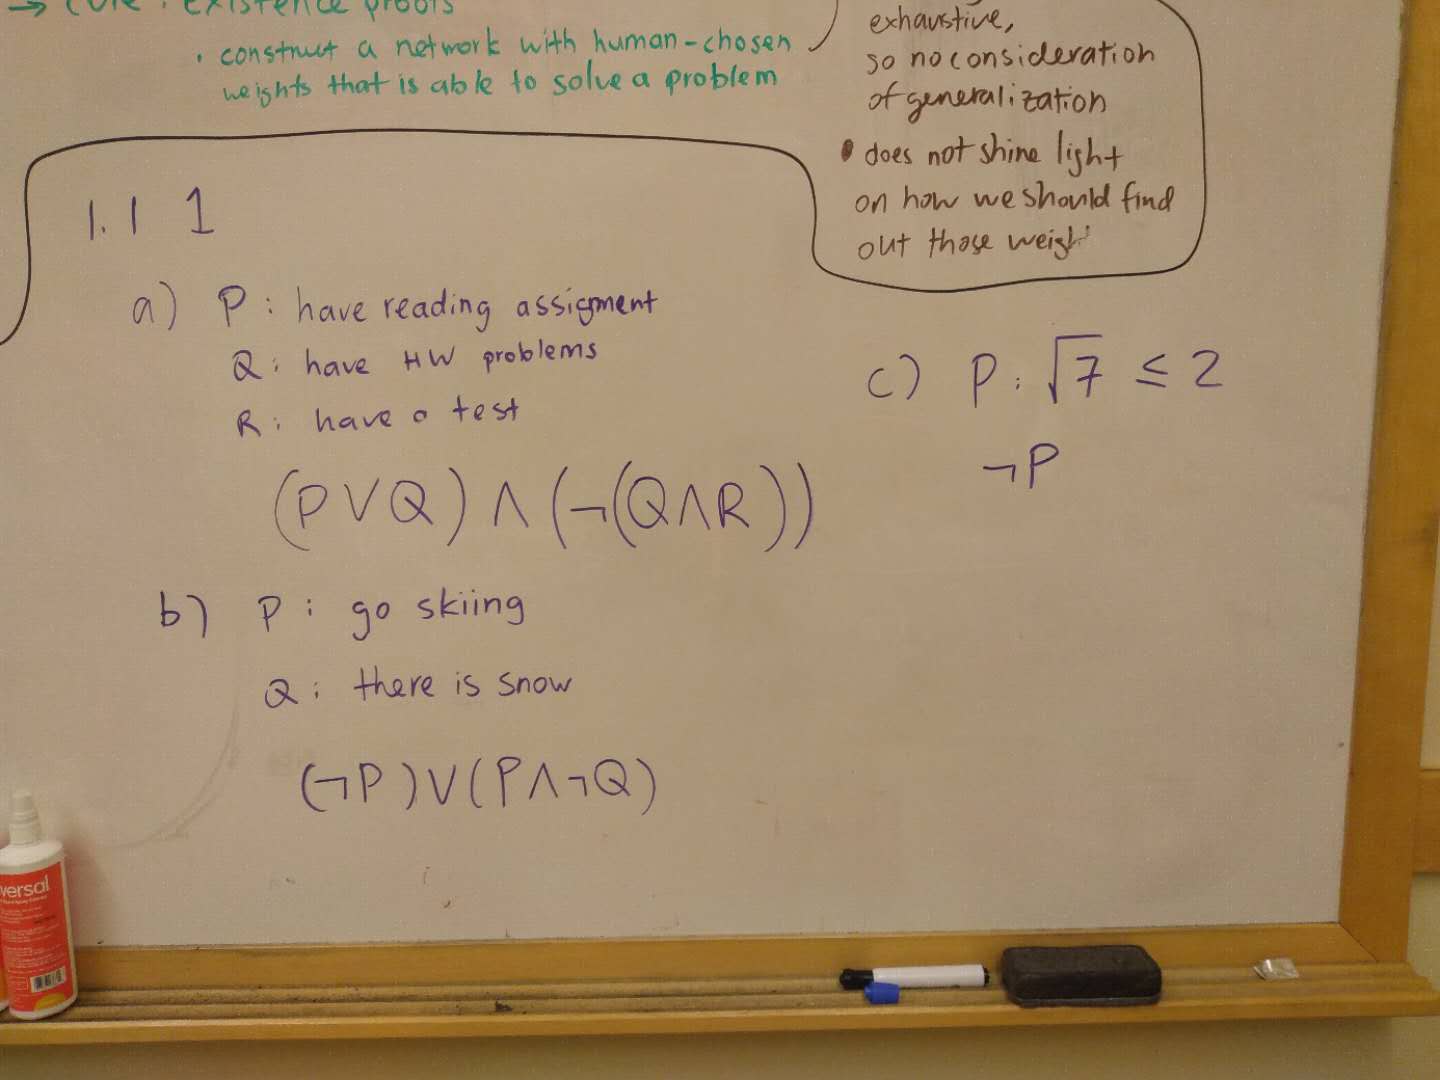 → core : existence proofs
· construct a network with human-chosen
weights that is able to solve a problem
exhaustive,
so no consideration
of generalization
• does not shine light
on how we should find
out those weigh
1.1 1
a) P : have reading assigment
Q : have HW problems
R : have a test
(P∨Q) ∧ (¬(Q∧R))
b) P : go skiing
Q : there is snow
(¬P)∨(P∧¬Q)
c) P : √7 ≤ 2
¬P
versal